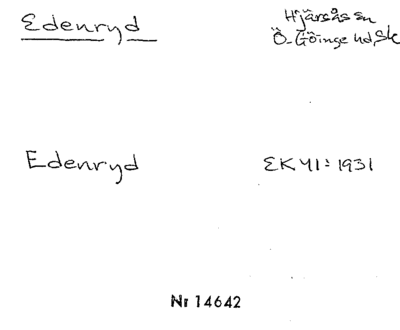 Edenryd
Hjärsås sn
Ö. Göinge hd, Sk
Edenryd
EK 41: 1931
Nr 14642